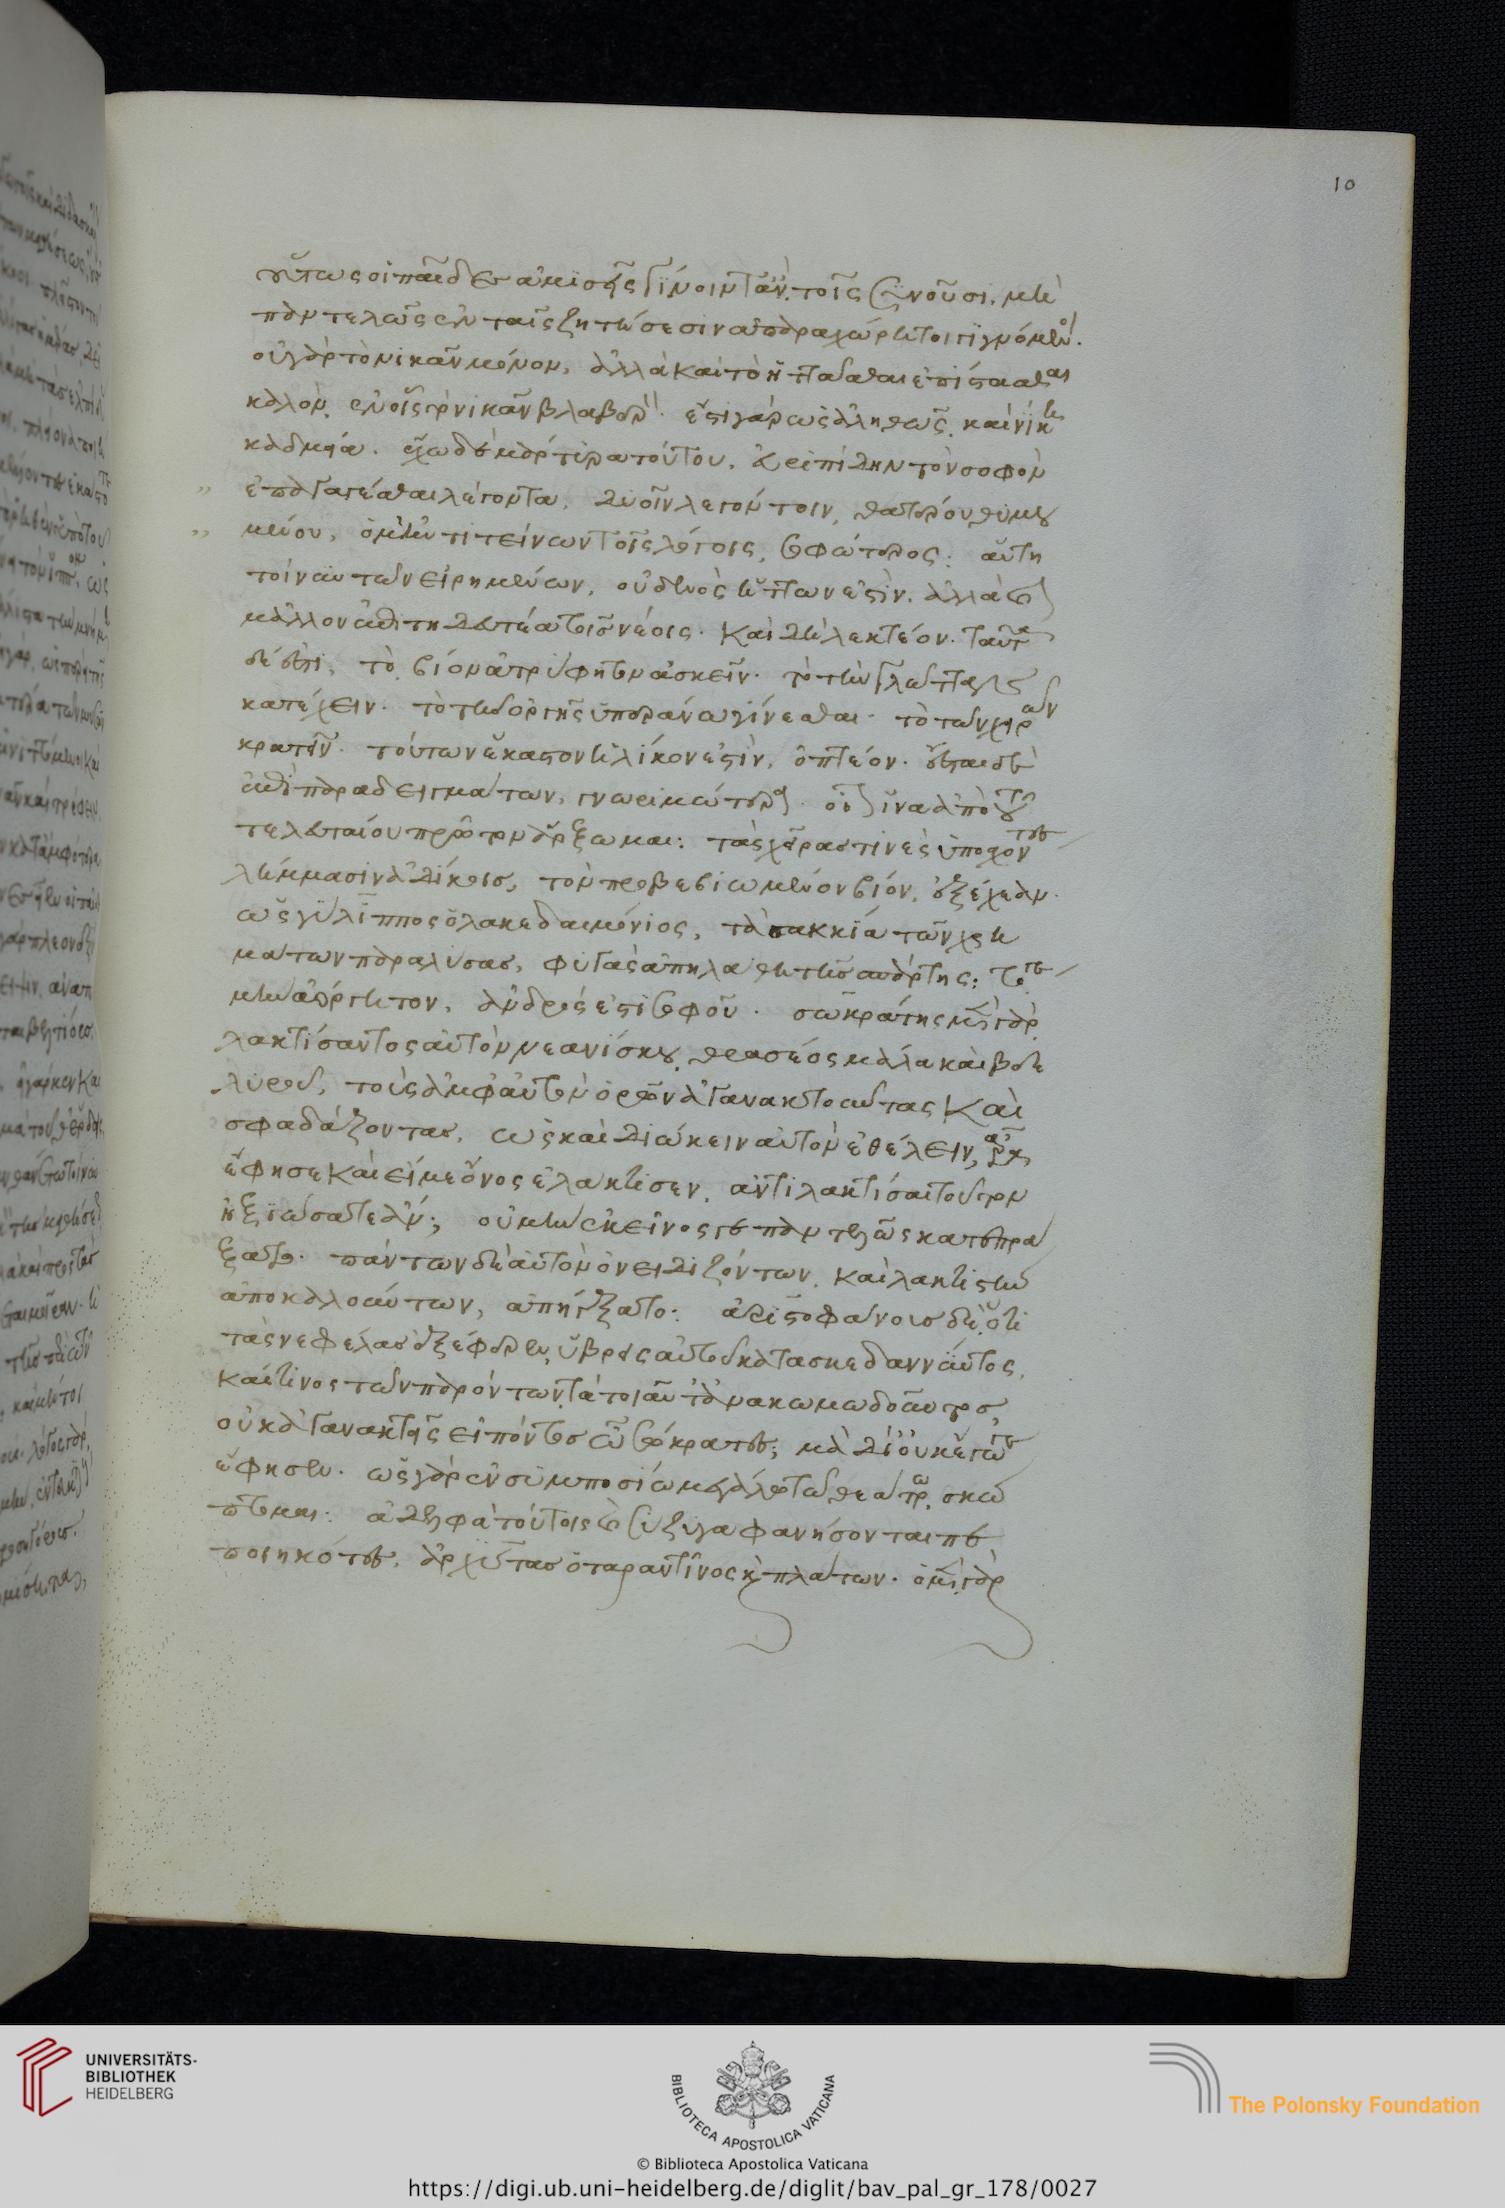 οὕτως οἱ παῖδες ἀμισεῖς γίνοιντ' ἄν, τοῖς συνοῦσι, μὴ
παντελῶς ἐν ταῖς ζητήσεσιν ἀπαραχώρητοι γιγνόμενοι.
οὐ γὰρ τὸ νικᾶν μόνον, ἀλλὰ καὶ τὸ ἡττᾶσθαι ἐπίστασθαι
καλὸν, ἐν οἷς τὸ νικᾶν βλαβερόν. ἔστι γὰρ ὡς ἀληθῶς, καὶ νίκη
καδμεία. ἔχω δὲ μάρτυρα τούτου, εὐριπίδην τὸν σοφὸν
ἐπαγαγέσθαι λέγοντα, δυοῖν λεγόντοιν, θατέρου θυμου
μένου, ὁ μὴ ἀντιτείνων τοῖς λόγοις, σοφώτερος. αὕτη
τοίνυν τῶν εἰρημένων, οὐδενὸς ἧττων ἐστὶν. ἀλλὰ καὶ
μᾶλλον ἐπιτηδευτέα τοῖς νέοις. καὶ δὴ λεκτέον. ταῦτα
δέ ἐστι, τὸ βίον ἀτρύφητον ἀσκεῖν. τὸ τὴν γλῶτταν
κατέχειν. τὸ τῆς ὀργῆς ὑπεράνω γίνεσθαι. τὸ τῶν χειρῶν
κρατεῖν. τούτων ἕκαστον ἡλίκον ἐστὶν, ὀπτέον. ἔσται δὲ
ἐπὶ παραδειγμάτων, γνωριμώτερα. οἷον ἵνα ἀπὸ τοῦ
τελευταίου πρῶτον ἄρξωμαι: τὰς χεῖρας τινὲς ὑποσχόντες
λήμμασιν ἀδίκοις, τὸν προβεβιωμένον βίον, ἐξέχεαν.
ὡς γύλιππος ὁ λακεδαιμόνιος, τὰ σακκία τῶν χρη
μάτων παραλύσας, φυγὰς ἀπηλάθη τῆς σπάρτης: τό γε
μὴν ἀόργητον, ἀνδρός ἐστι σοφοῦ. σωκράτης μὲν γὰρ
λακτίσαντος αὐτὸν νεανίσκου, θρασέος μάλα καὶ βδε
λυροῦ, τοὺς ἀμφ' αὐτὸν ὁρῶν ἀγανακτοῦντας καὶ
σφαδάζοντας, ὡς καὶ διώκειν αὐτὸν ἐθέλειν, ἆρα
ἔφησε καὶ εἴ με ὄνος ἐλάκτισεν, ἀντιλακτίσαι τοῦτον
ἠξιώσατε ἄν; οὐ μὴν ἐκεῖνός γε παντελῶς κατεπρά
ξατο. πάντων δὲ αὐτὸν ὀνειδιζόντων, καὶ λακτιστὴν
ἀποκαλούντων, ἀπήγξατο: ἀριστοφάνους δὲ, ὅτι
τὰς νεφέλας ἐξέφερεν, ὕβρεις αὐτοῦ κατασκεδαννύντος,
καί τινος τῶν παρόντων, τὰ τοιαῦτα ἀνακωμωδοῦντος,
οὐκ ἀγανακτεῖς εἰπόντος ὦ σώκρατες; μὰ δί' οὐκ ἔγωγε
ἔφησεν. ὡς γὰρ ἐν συμποσίω μεγάλω τῶ θεάτρω, σκώ
πτομαι: ἀδελφὰ τούτοις καὶ σύζυγα φανήσονται πε
ποιηκότες, ἀρχύτας ὁ ταραντῖνος καὶ πλάτων. ὁ μὲν γὰρ
10
UNIVERSITÄTS-
BIBLIOTHEK
HEIDELBERG
BIBLIOTECA APOSTOLICA VATICANA
The Polonsky Foundation
© Biblioteca Apostolica Vaticana
https://digi.ub.uni-heidelberg.de/diglit/bav_pal_gr_178/0027